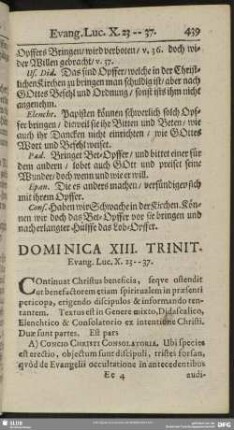 Evang. Luc. X. 23--37. 439
Opffers Bringen/ wird verboten/ v. 36. doch wi-
der Willen gebracht/ v. 37.
Us. Did. Das sind Opffer/ welche in der Christ-
lichen Kirchen zu bringen man schuldig ist/ aber nach
GOttes Befehl und Ordnung/ sonst ists ihm nicht
angenehm.
Elencht. Papisten können schwerlich solch Opf-
fer bringen/ dieweil sie ihr Bitten und Beten/ wie
auch ihr Dancken nicht einrichten/ wie GOttes
Wort und Befehl weiset.
Pæd. Bringet Bet-Opffer/ und bittet einer für
dem andern/ lobet auch GOtt und preiset seine
Wunder/ doch wenn und wie er will.
Epan. Die es anders machen/ versündigen sich
mit ihrem Opffer.
Cons. Haben wir Schwache in der Kirchen. Kön-
nen wir doch das Bet-Opffer vor sie bringen und
nach erlangter Hülffe das Lob-Opffer.
DOMINICA XIII. TRINIT.
Evang. Luc. X. 23--37.
COntinuat Christus beneficia, seqve ostendit
ut benefactorem etiam spiritualem in præsenti
pericopa, erigendo discipulos & informando ten-
tantem. Textus est in Genere mixto, Didascalico,
Elenchtico & Consolatorio ex intentione Christi.
Duæ sunt partes. Est pars
A) CONCIO CHRISTI CONSOLATORIA. Ubi species
est erectio, objectum sunt discipuli, tristes forsan,
qvòd de Evangelii occultatione in antecedentibus
Ee 4 audi-